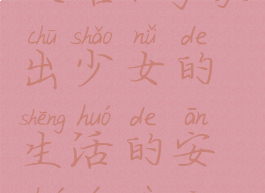 chū shǎo nǚ de
出少女的
shēng huó de ān
生活的安